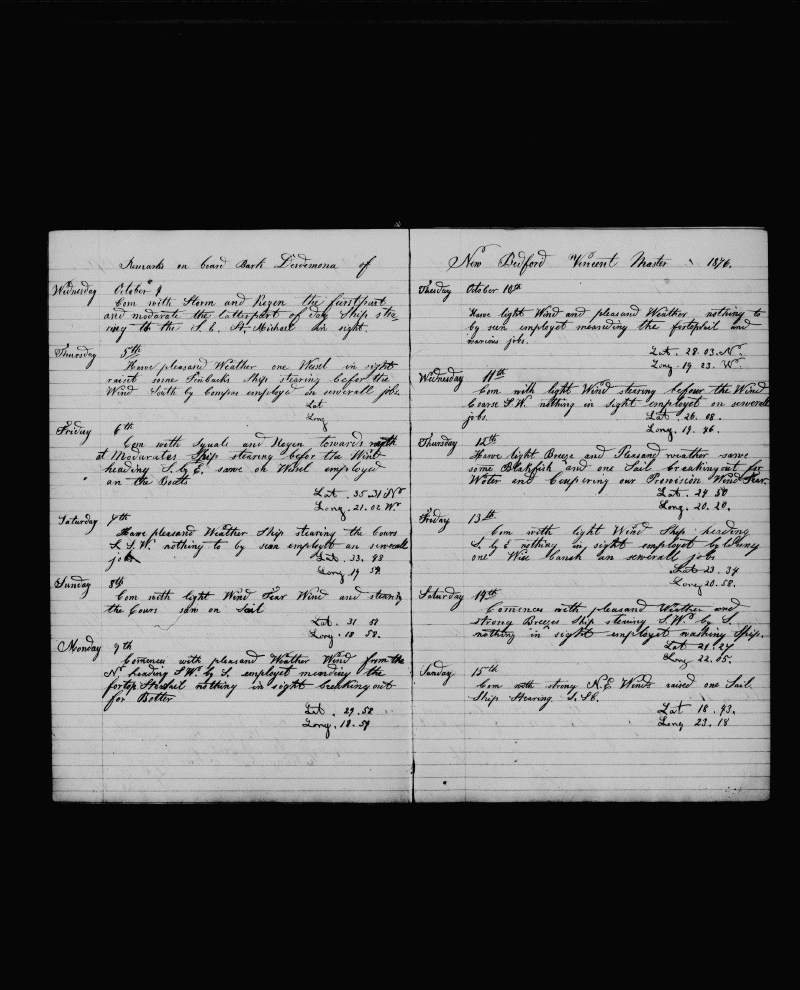 Remarks on board Bark Desdemona of
Wednesday October 4
Com with Storm and Regen the fuirst part
and moderate the latterpart of day Ship stea-
ring to the S.E. St. Michael in sight.
Thursday 5th
Have pleasand Weather one Vesel in sight
raiset some Finbacks Ship stearing befor the
Wind South by Compas employd on sewerall jobs.
Lat
Long
Friday 6th
Com with Squals and Regen towards night
at Modarates Ship stearing befor the Wind
heading S. by E. sawe on Vesel employed
an the Boats
Lat. 35.31 N
Long. 21.02 W
Saturday 7th
Have pleasand Weather Ship stearing the Cours
S.S.W. nothing to by sean employet an sewerall
jobs Lat. 33. 48
Long 19 54
Sunday 8th
Com with light Wind Fear Wind and stearing
the Cours saw on Sail
Lat. 31 51
Long. 18 58.
Monday 9th
Comences with pleasand Weather Wind from the
N. heading S.W. by S. employet mending the
fortop Staisail nothing in sight breaking out
for Botter
Lat. 29.52
Long. 18.59
New Bedford Vincent Master 1876.
Tuesday October 10th
Have light Wind and pleasand Weather nothing to
by sean employet meanding the fortopsail and
various jobs.
Lat. 28.03. N.
Long. 19 23. W.
Wednesday 11th
Com with light Wind stearing befour the Wind
Coarse S.W. nothing in sight employet on sewerall
jobs. Lat. 26. 08.
Long. 19. 46.
Thursday 12th
Have light Breeze and Pleasand weather sawe
some Blakfish and one Sail breaking out for
Water and Coupering our Provision Wind Fear.
Lat. 24 50
Long. 20. 20.
Friday 13th
Com with light Wind Ship heading
S. by E nothing in sight employet by
one an sewerall jobs
Lat 23. 34
Long 20. 58.
Saturday 14th
Comences with pleasand Weather and
strong Breezes Ship stearing S.W. by S.
nothing in sight employet washing Ship.
Lat 21. 27
Long 22. 05.
Sunday 15th
Com with strong N.E. Winds raised one Sail.
Ship Stearing S.
Lat 18. 43.
Long 23. 18